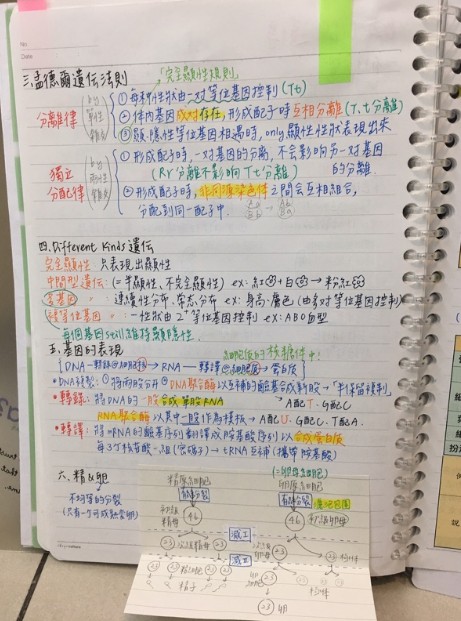 No.
Date
三.孟德爾遺傳法則 「完全顯性規則」
分離律
① 每種性狀由一對等位基因控制 (Tt)
② 體內基因成對存在, 形成配子時互相分離 (T、t分離)
③ 顯、隱性等位基因相遇時, only顯性性狀表現出來
獨立
分配律
① 形成配子時, 一對基因的分離, 不會影響另一對基因
(Rr分離不影響Tt分離) 的分離.
② 形成配子時, 非同源染色体之間會互相組合,
分配到同一配子中.
四.Different kinds 遺傳
完全顯性 只表現出顯性
中間型遺傳: (=半顯性、不完全顯性) ex: 紅 + 白 → 粉紅
多基因 " : 連續性分布、常态分布 ex: 身高、膚色 (由多對等位基因控制)
" : 一性狀由 2↑等位基因控制 ex: ABO血型
每個基因still維持顯隱性
五.基因的表現
DNA—轉錄→RNA—轉譯→蛋白质
• DNA複製: ① 將兩股分開 ② DNA聚合酶以互補的鹼基合成新股→半保留複製
• 轉錄: 將DNA的一股合成單股RNA A配T、G配C
RNA聚合酶以其中一股作為模板→A配U、G配C、T配A.
• 轉譯: 將mRNA的鹼基序列翻譯成胺基酸序列以合成蛋白质
每3个核苷酸一組(密碼子)→tRNA互補(攜帶胺基酸)
六、精&卵
不均等的分裂
(只有一个可成熟 卵)
精原細胞
初級
精母
46
減I
23 23 次級精母
減II
23 23 23 23
精子
(=卵母細胞)
卵原細胞
有絲分裂
46 初級卵母
23
極体
23 卵